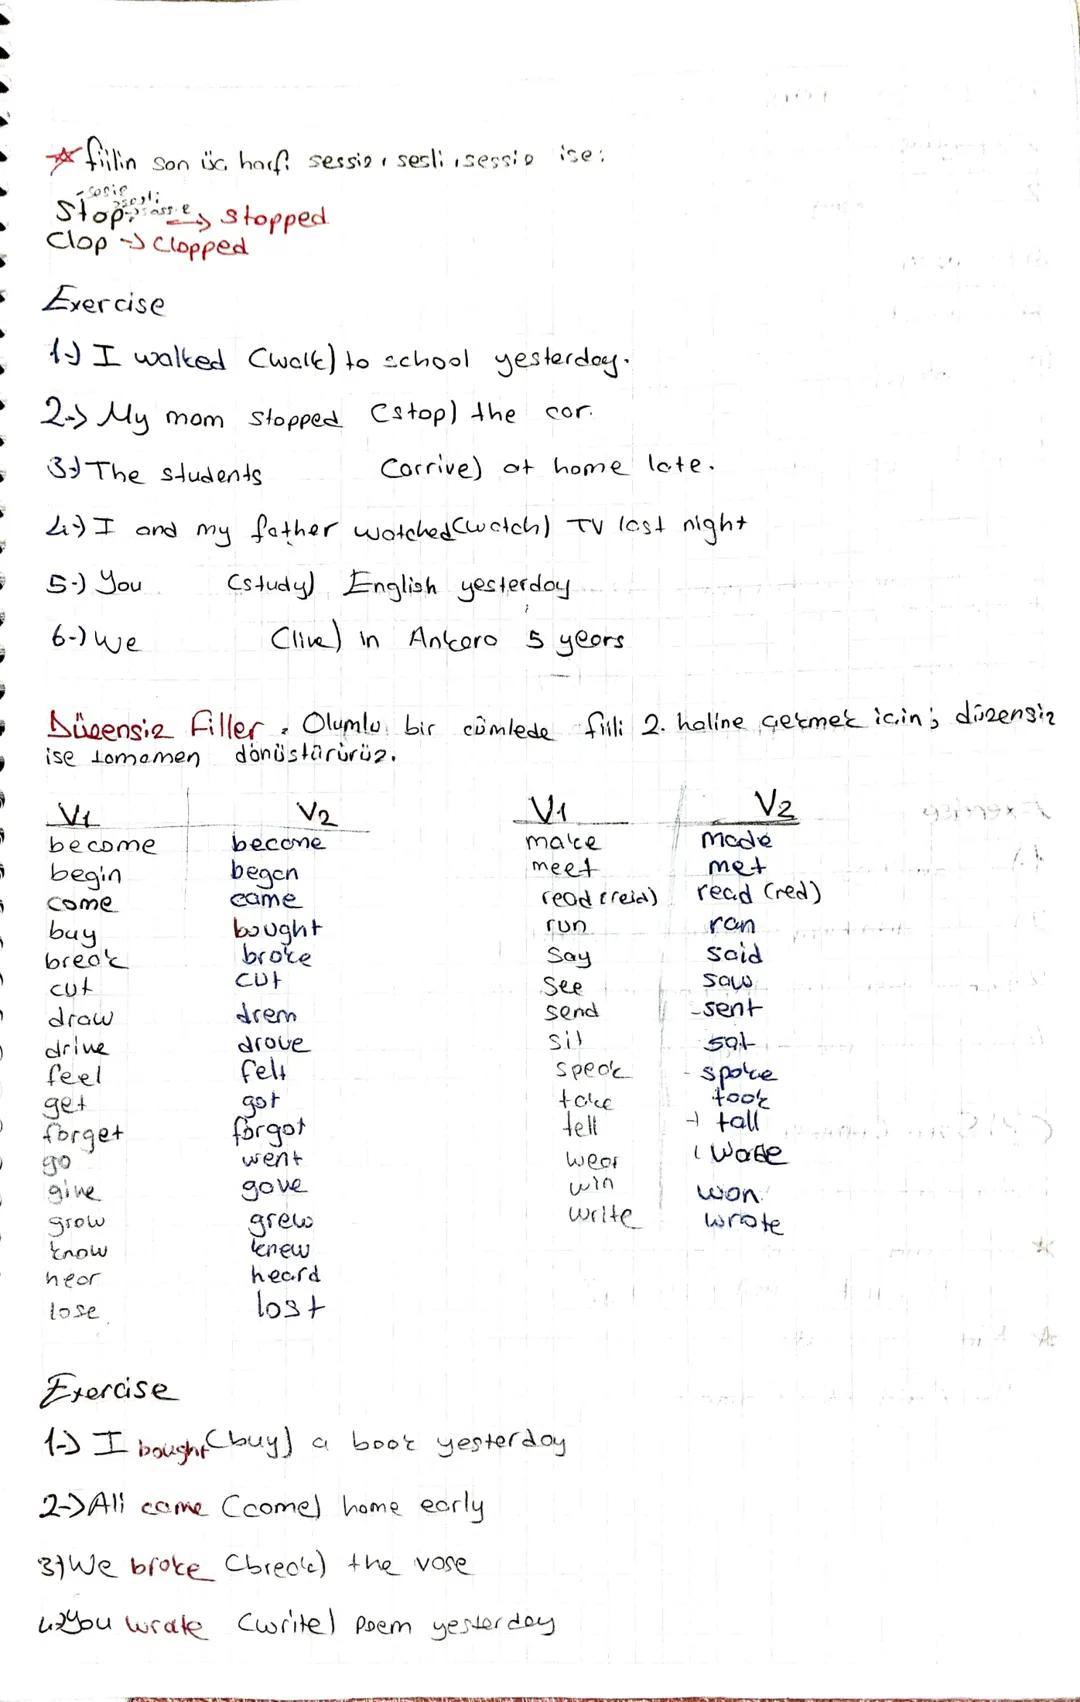 ☆ fiilin son üç harfi sessiz, sesli, sessiz ise:
sesli
Stop → stopped
Clop → Clopped
Exercise
1-) I walked (walk) to school yesterday.
2-) My mom stopped (stop) the car.
3-) The students (arrive) at home late.
4-) I and my father watched (watch) TV last night
5-) You (study) English yesterday
6-) We (live) in Ankara 5 years
Düzensiz Filler. Olumlu bir cümlede fiili 2. haline çekmek için; düzensiz
ise tamamen dönüştürürüz.
V1 V2 V1 V2
become become make made
begin began meet met
come came read (reid) read (red)
buy bought run ran
break broke say said
cut cut see saw
draw drem send sent
drive drove sit sat
feel felt speak spoke
get got take took
forget forgot tell tall
go went wear
give gave win won
grow grew write wrote
know knew
hear heard
lose lost
Exercise
1-) I bought (buy) a book yesterday
2-) Ali came (come) home early
3-) We broke (break) the vase
4-) You wrate (write) poem yesterday